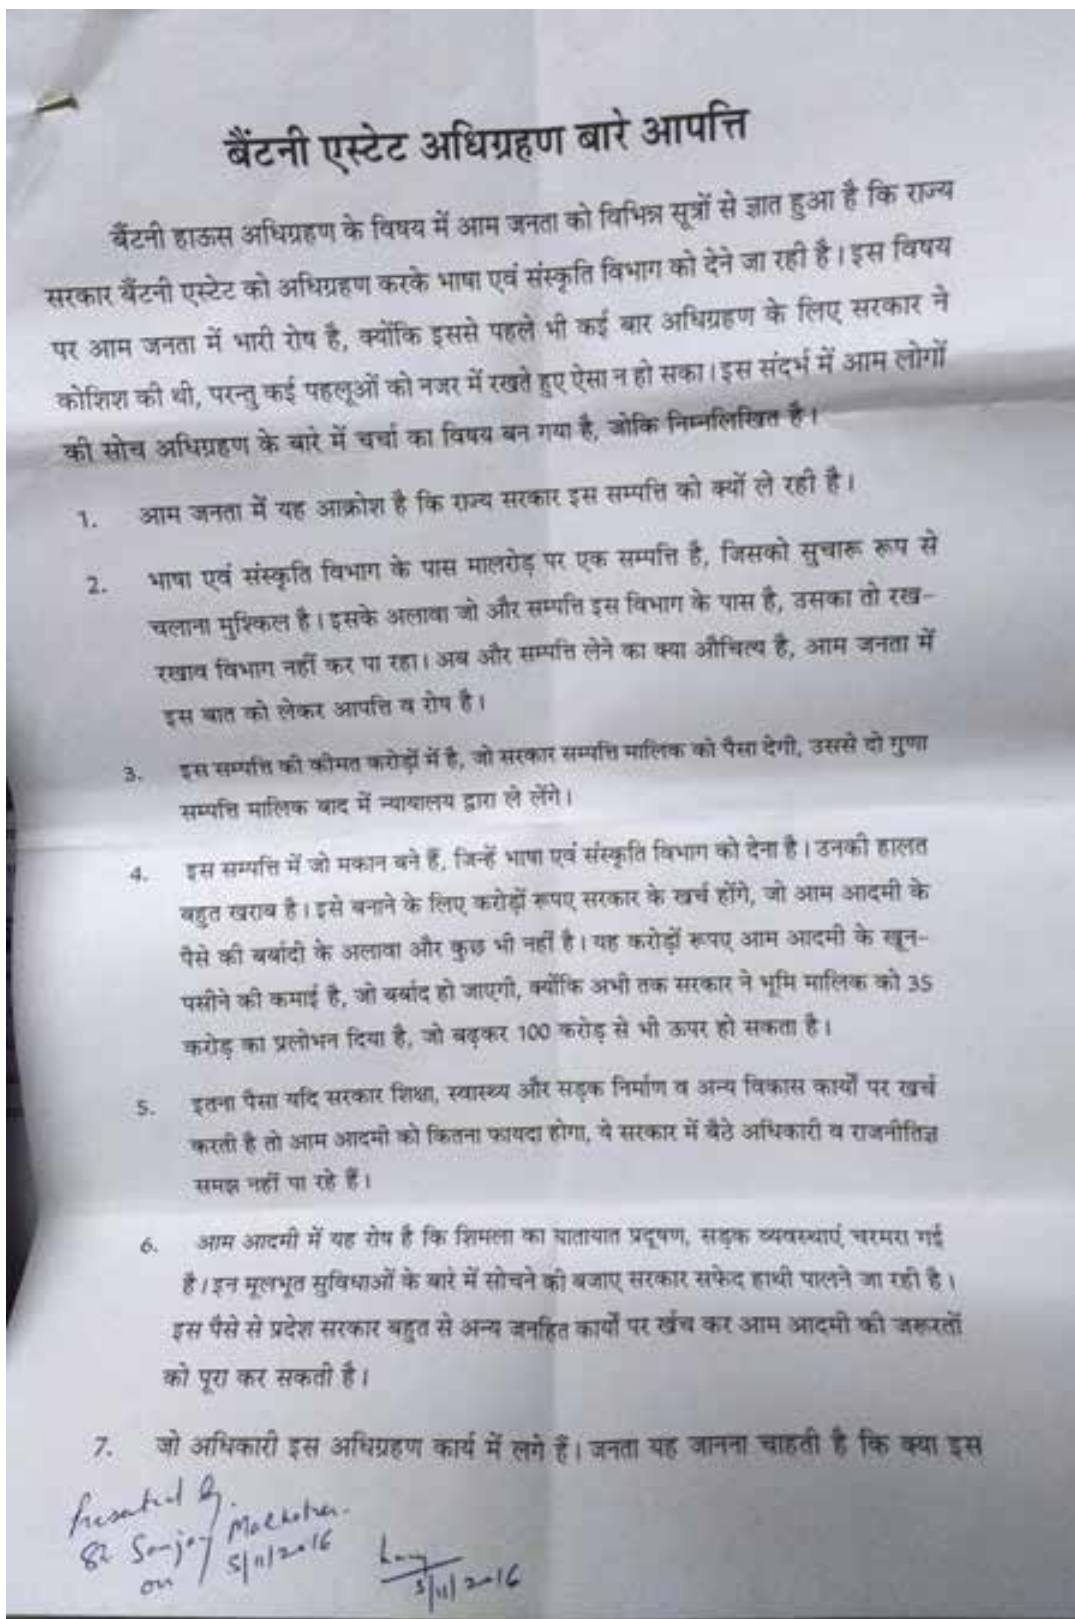 बैंटनी एस्टेट अधिग्रहण बारे आपत्ति
बैंटनी हाऊस अधिग्रहण के विषय में आम जनता को विभिन्न सूत्रों से ज्ञात हुआ है कि राज्य
सरकार बैंटनी एस्टेट को अधिग्रहण करके भाषा एवं संस्कृति विभाग को देने जा रही है। इस विषय
पर आम जनता में भारी रोष है, क्योंकि इससे पहले भी कई बार अधिग्रहण के लिए सरकार ने
कोशिश की थी, परन्तु कई पहलूओं को नजर में रखते हुए ऐसा न हो सका। इस संदर्भ में आम लोगों
की सोच अधिग्रहण के बारे में चर्चा का विषय बन गया है, जोकि निम्नलिखित है।
1. आम जनता में यह आक्रोश है कि राज्य सरकार इस सम्पत्ति को क्यों ले रही है।
2. भाषा एवं संस्कृति विभाग के पास मालरोड़ पर एक सम्पत्ति है, जिसको सुचारू रूप से
चलाना मुश्किल है। इसके अलावा जो और सम्पत्ति इस विभाग के पास है, उसका तो रख-
रखाव विभाग नहीं कर पा रहा। अब और सम्पत्ति लेने का क्या औचित्य है, आम जनता में
इस बात को लेकर आपत्ति व रोष है।
3. इस सम्पत्ति की कीमत करोड़ों में है, जो सरकार सम्पत्ति मालिक को पैसा देगी, उससे दो गुणा
सम्पत्ति मालिक बाद में न्यायालय द्वारा ले लेंगे।
4. इस सम्पत्ति में जो मकान बने हैं, जिन्हें भाषा एवं संस्कृति विभाग को देना है। उनकी हालत
बहुत खराब है। इसे बनाने के लिए करोड़ों रूपए सरकार के खर्च होंगे, जो आम आदमी के
पैसे की बर्बादी के अलावा और कुछ भी नहीं है। यह करोड़ों रूपए आम आदमी के खून-
पसीने की कमाई है, जो बर्बाद हो जाएगी, क्योंकि अभी तक सरकार ने भूमि मालिक को 35
करोड़ का प्रलोभन दिया है, जो बढ़कर 100 करोड़ से भी ऊपर हो सकता है।
5. इतना पैसा यदि सरकार शिक्षा, स्वास्थ्य और सड़क निर्माण व अन्य विकास कार्यों पर खर्च
करती है तो आम आदमी को कितना फायदा होगा, ये सरकार में बैठे अधिकारी व राजनीतिज्ञ
समझ नहीं पा रहे हैं।
6. आम आदमी में यह रोष है कि शिमला का यातायात प्रदूषण, सड़क व्यवस्थाएं चरमरा गई
है। इन मूलभूत सुविधाओं के बारे में सोचने की बजाए सरकार सफेद हाथी पालने जा रही है।
इस पैसे से प्रदेश सरकार बहुत से अन्य जनहित कार्यों पर खर्च कर आम आदमी की जरूरतों
को पूरा कर सकती है।
7. जो अधिकारी इस अधिग्रहण कार्य में लगे हैं। जनता यह जानना चाहती है कि क्या इस
Presented by
Sh Sanjay Malhotra.
on 5/11/2016
5/11/2016